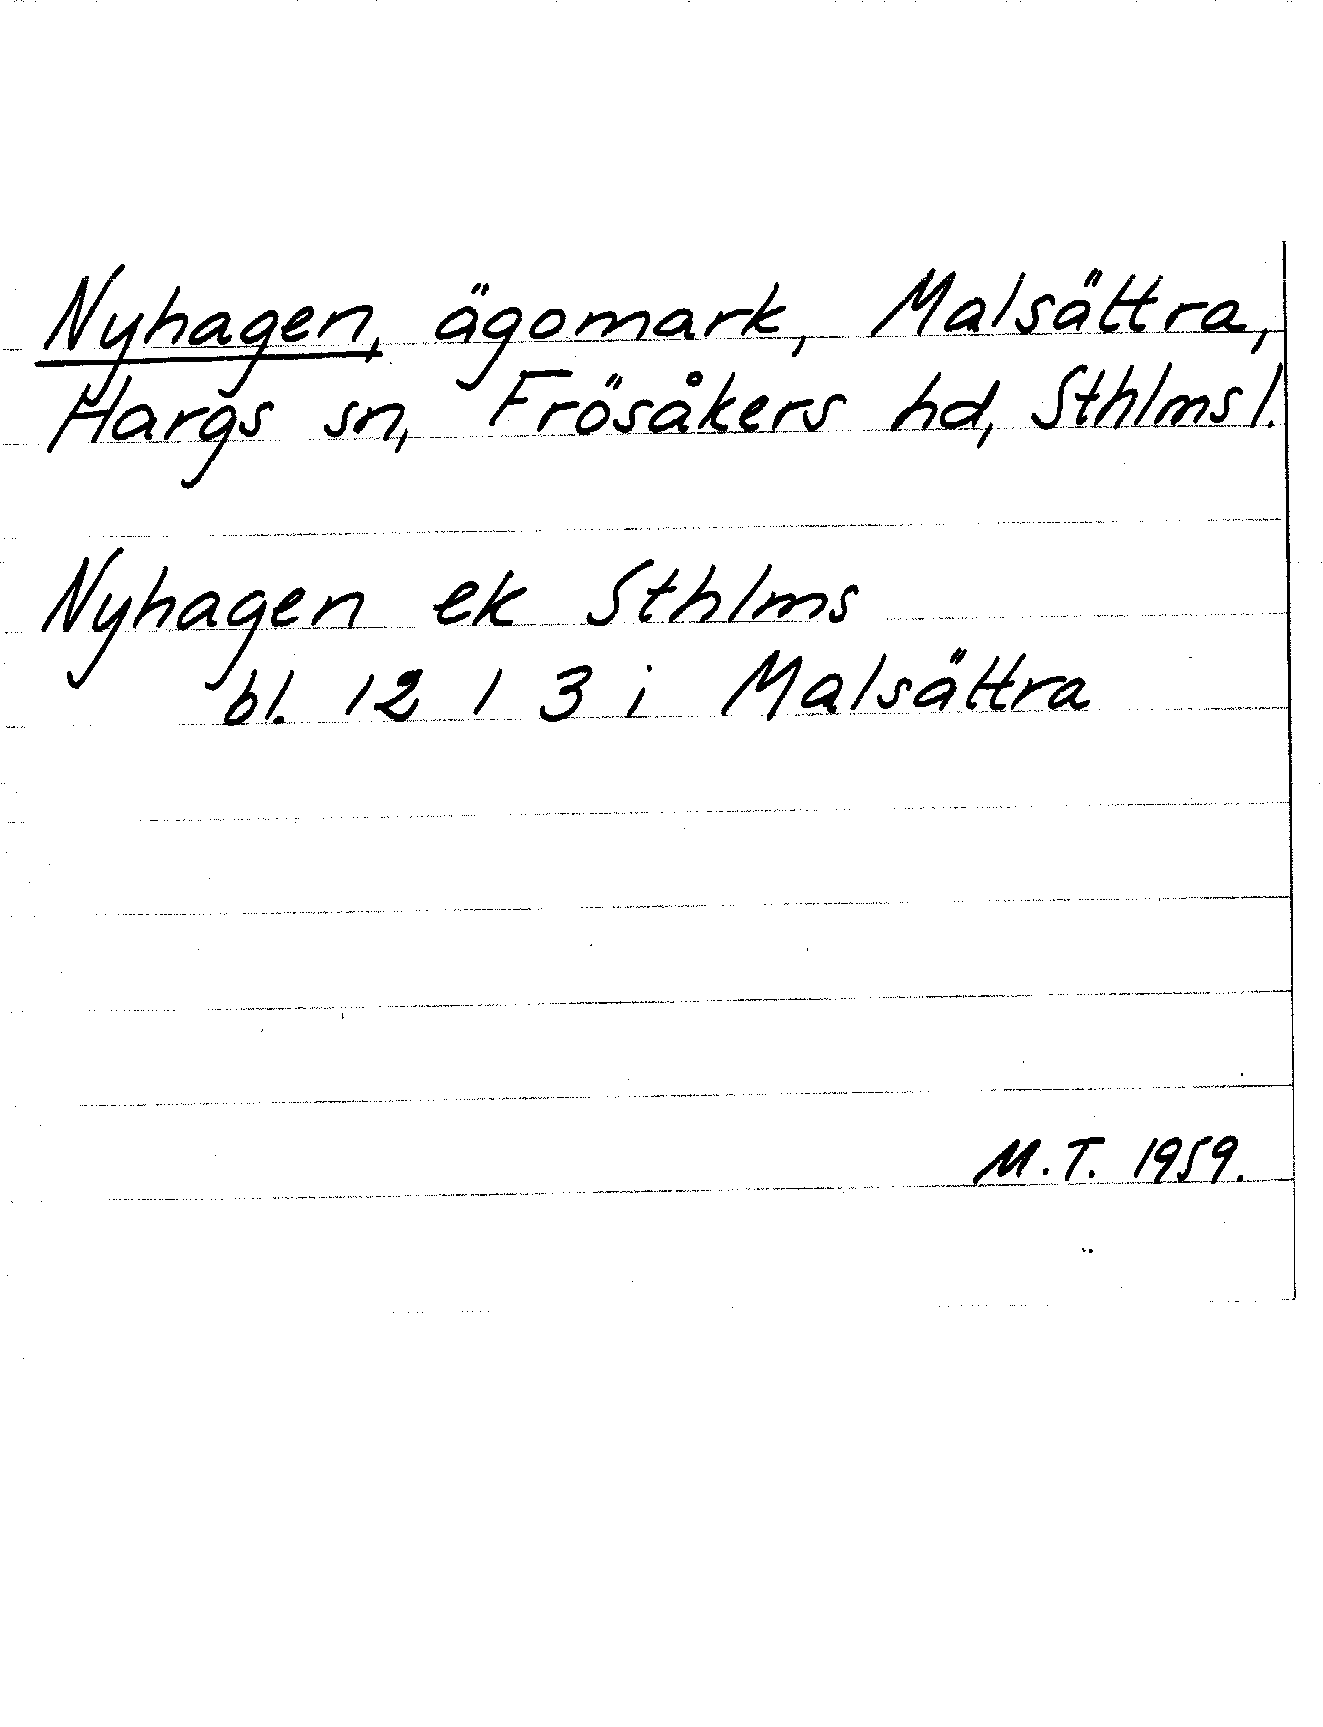 Nyhagen, ägomark, Malsättra,
Hargs sn, Frösåkers hd, Sthlms l.
Nyhagen ek Sthlms
bl. 12 1 3 i Malsättra
M.T. 1959.